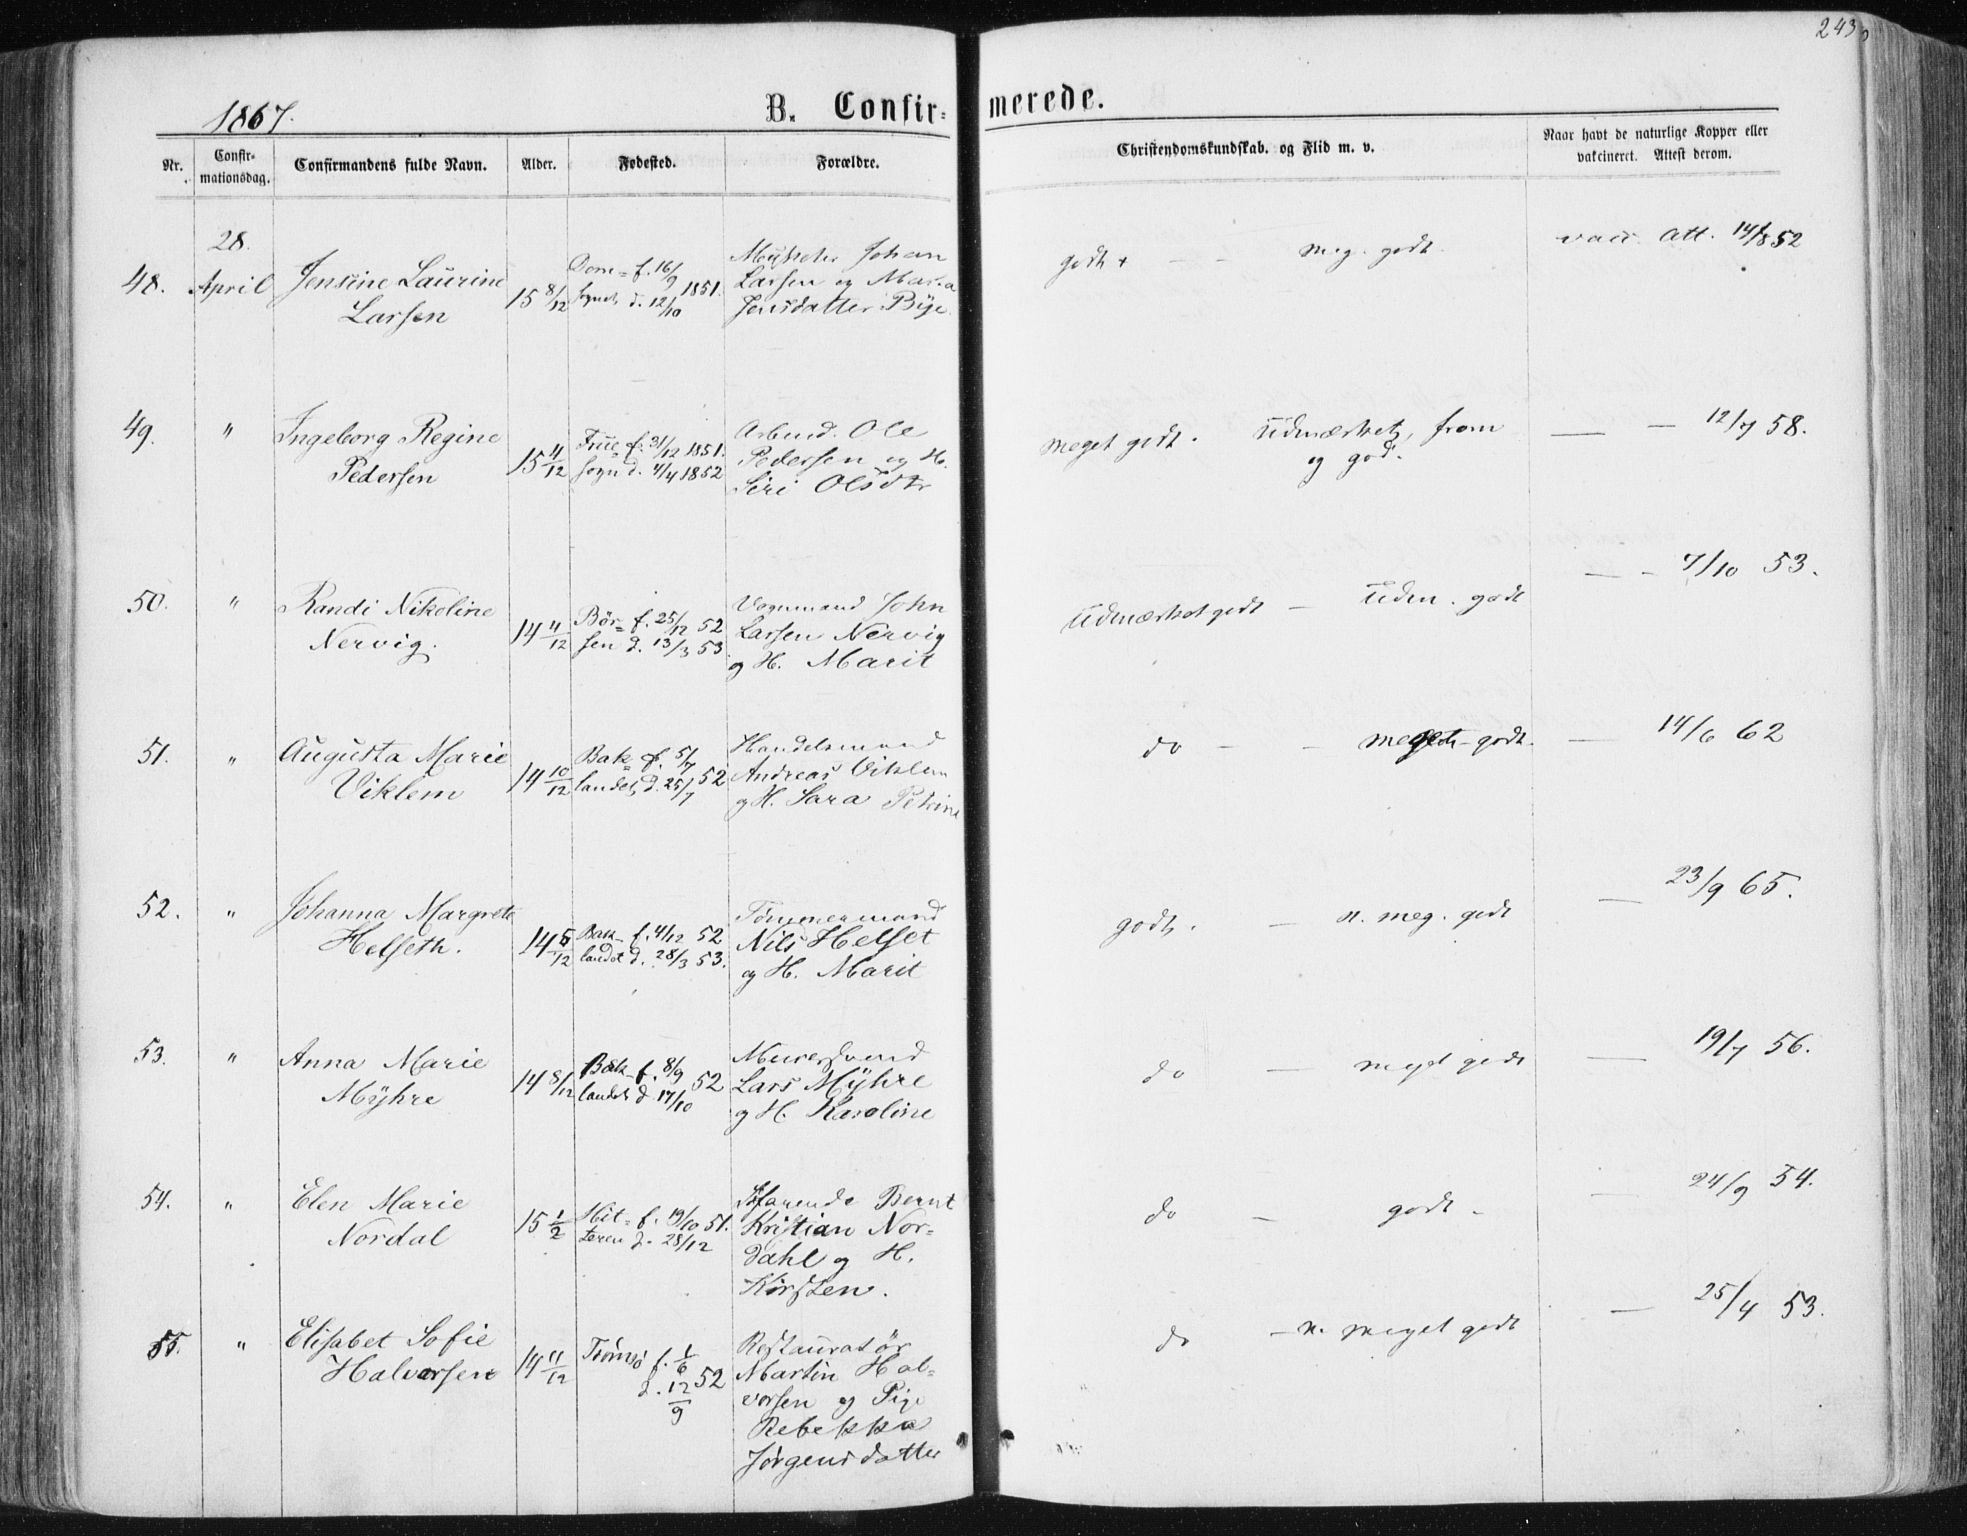 243
1867.
B. Confir-
merede.
Nr.
Confir-
mationsdag.
Confirmandens fulde Navn.
Alder.
Fødested.
Forældre.
Christendomskundskab. og Flid m. v.
Naar havt de naturlige Kopper eller
vakcineret. Attest derom.
48.
28.
April
Jensine Laurine
Larsen
15 8/12
Dom= f. 16/9 1851.
Sognet d. 12/10
Johan
Larsen og Maria
Jensdatter Bye
godt + - - meg. godt.
vacc. Att. 14/8 52
49.
"
Ingeborg Regine
Pedersen
15 4/12
Frue= f. 31/12 1851.
sogn d. 4/4 1852
Arbmd. Ole
Pedersen og H.
Siri Olsdtr
meget godt. Udmærket, from
og god.
— — 12/7 58.
50.
"
Randi Nikoline
Nervig.
14 4/12
Bør= f. 25/12 52
sen d. 13/3 53
Vognmand John
Larsen Nervig
og H. Marit
Udmærket godt — Udm. godt
— - 7/10 53.
51.
"
Augusta Marie
Viklem
14 10/12
Bak= f. 5/7
landet d. 25/7 52
Handelsmand
Andreas Viklem
og H. Sara Petrine
do - - meget godt.
— 14/6 62
52.
"
Johanna Margrete
Helseth.
14 5/12
Bak- f. 4/12 52
landet d. 28/3 53.
Tømmermand
Nils Helset
og H. Marit
godt. — n. meg. godt
— 23/9 65.
53.
"
Anna Marie
Myhre
14 8/12
Bak- f. 8/9
landet d. 17/10 52
Murersvend
Lars Myhre
og H. Karoline
do — meget godt
— 19/7 56.
54.
"
Elen Marie
Nordal
15 1/2
Hit= f. 19/10 51.
teren d. 28/12
Søfarende Bernt
Kristian Nor=
dahl og H.
Kirsten.
do — godt -
— 24/9 54.
55.
"
Elisabet Sofie
Halvorsen
14 11/12
Tromsø f. 1/6
d. 12/9 52
Restauratør
Martin Hal=
vorsen og Pige
Rebekka
Jörgensdatter
do — n. meget godt
— 25/4 53.